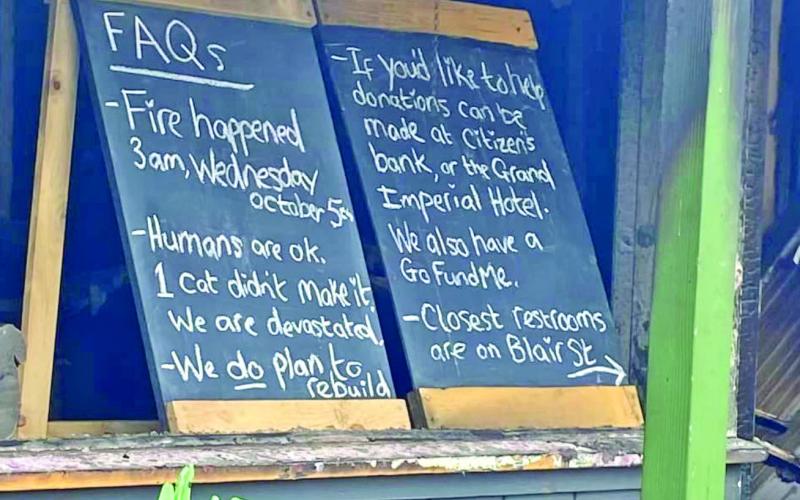 FAQs
-Fire happened
3am, Wednesday
october 5th
-Humans are ok.
1 cat didn't make it.
We are devastated.
-We do plan to
rebuild
-If you'd like to help
donations can be
made at Citizen's
bank, or the Grand
Imperial Hotel.
We also have a
GoFundMe.
-Closest restrooms
are on Blair St